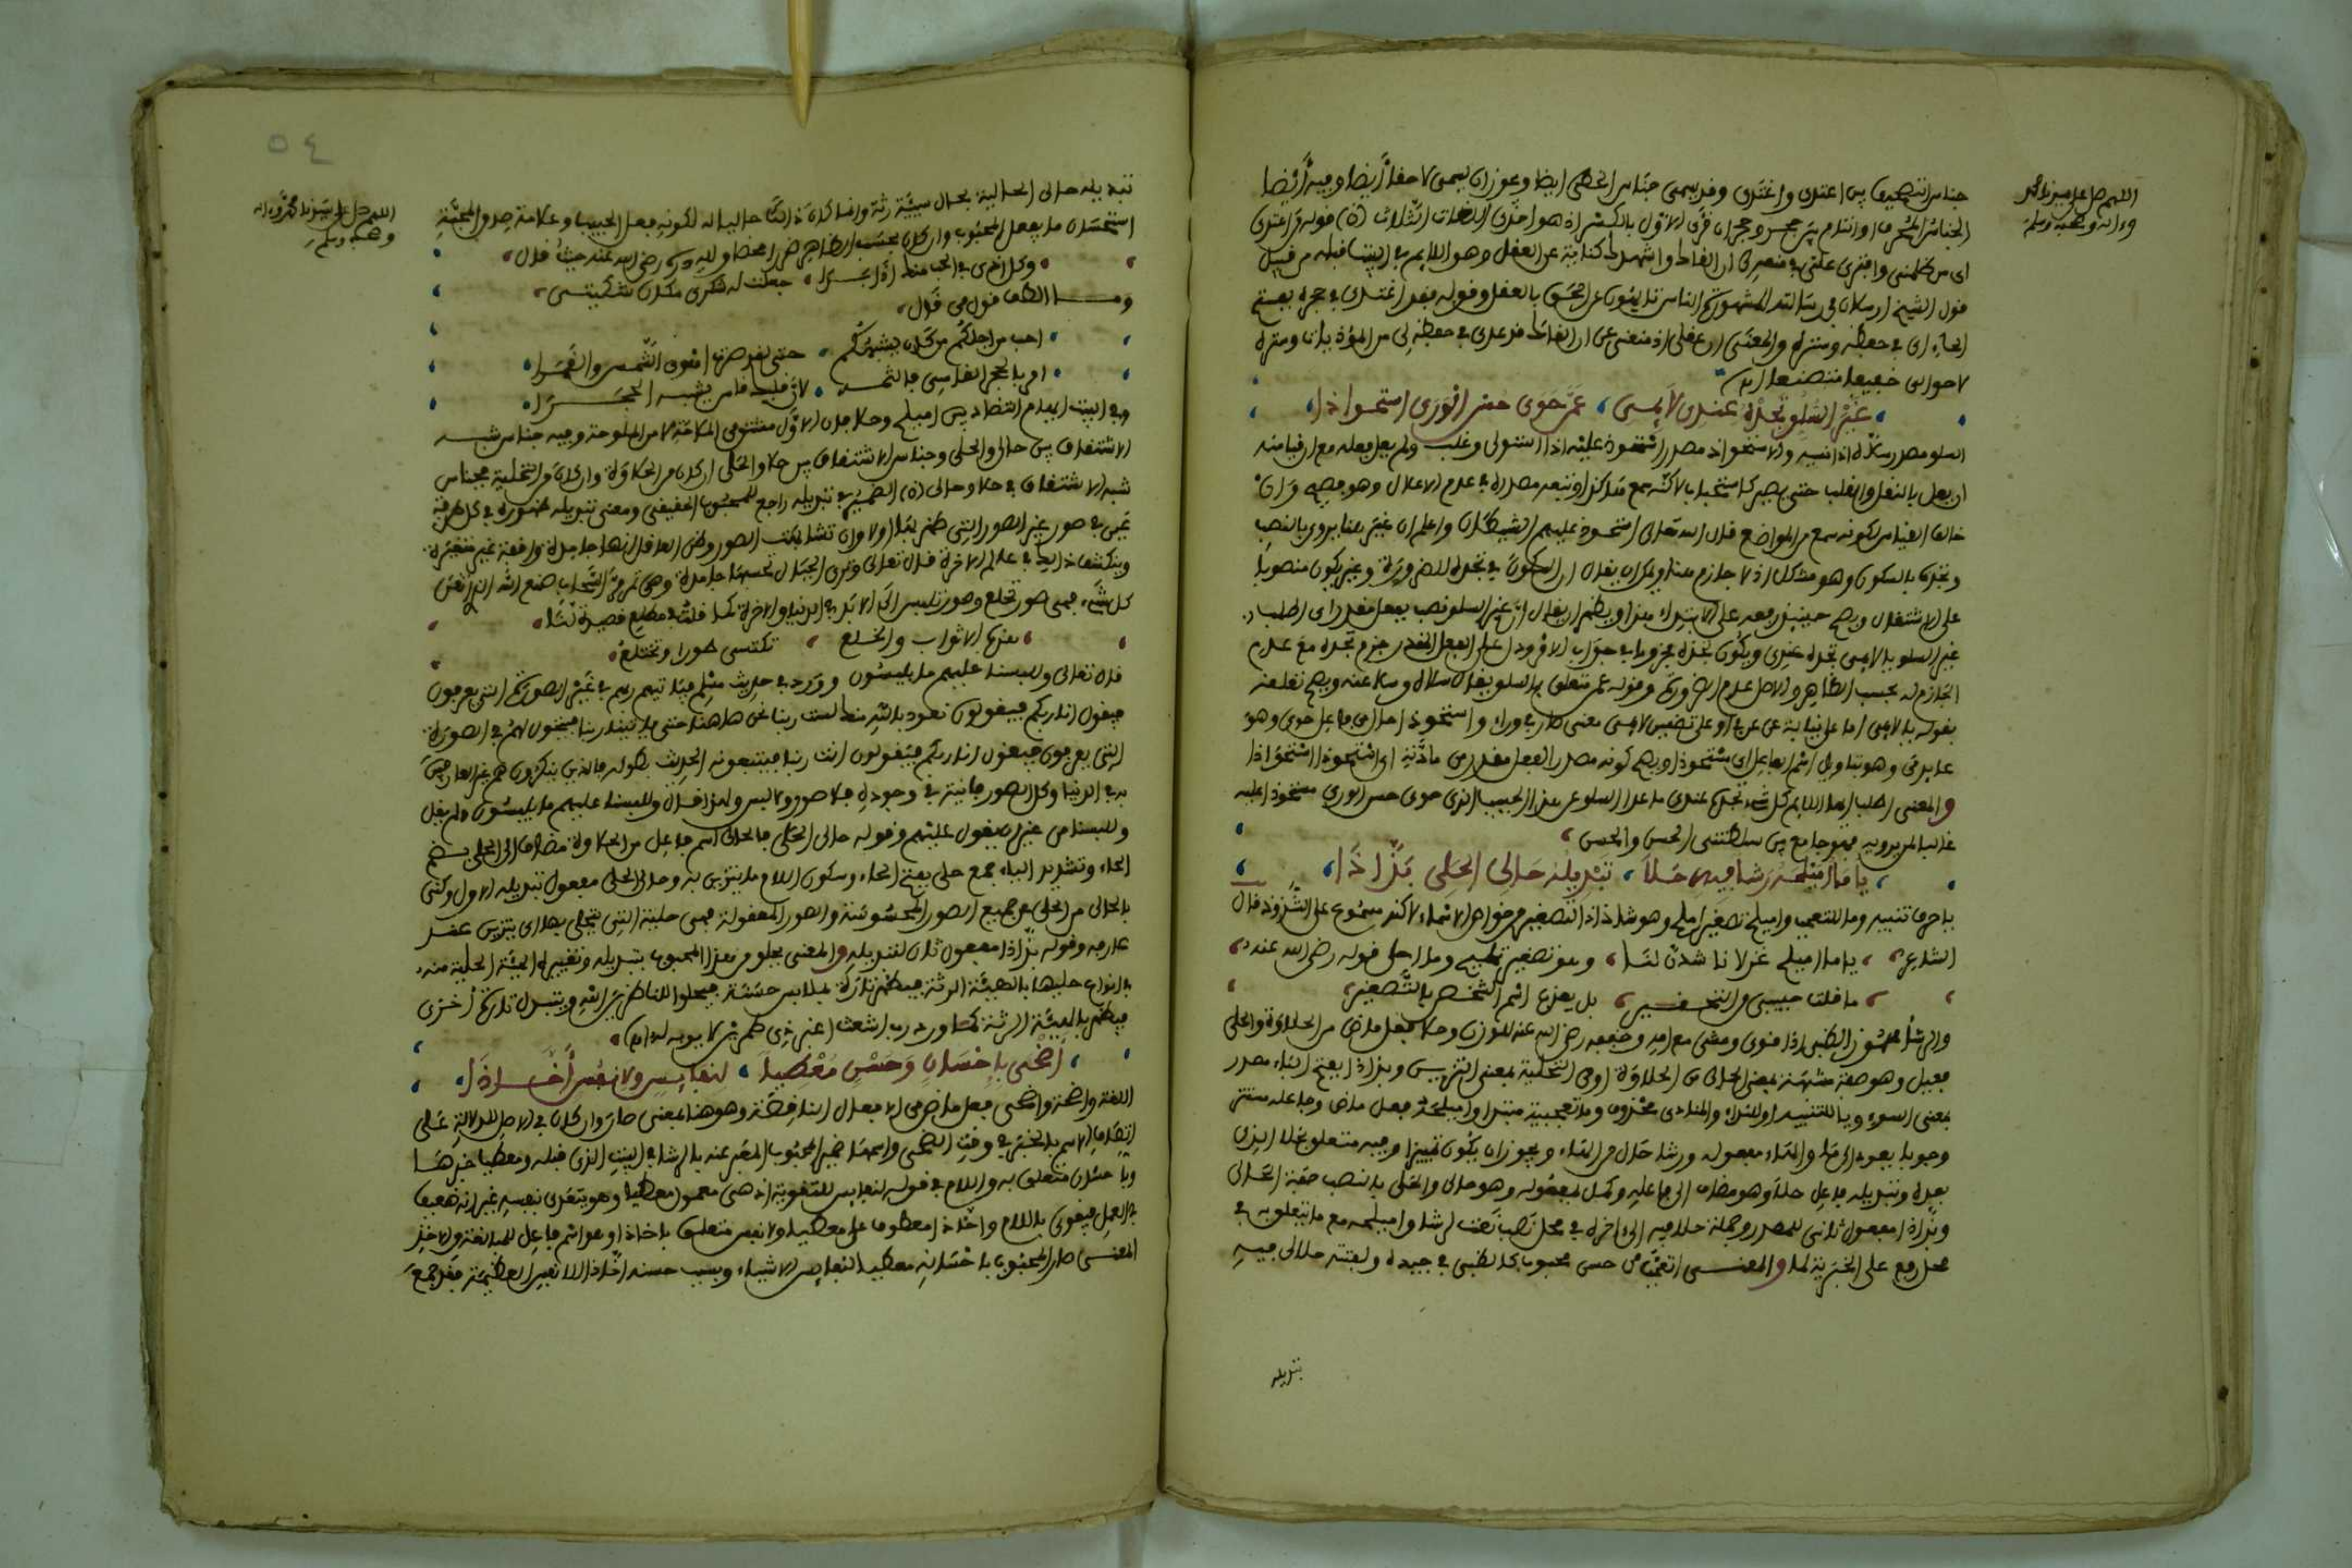 اللهم صل على سيدنا محمد
وءاله وصحبه وسلم
جناس التصحيف بين اعتدى واغتدى وقد يسمى جناس الخطى ايضا ويجوز ان يسمى لاحقا ايضا وفيه ايضا
الجناس المحرف او التام بين حجر وحجر ان قرئ الاول بالكسر اذ هو احدى اللغات الثلاث قوله قد اعتدى
اى من ظلمنى وافترى على فى
قول الشيخ ارسلان فى رسالته المشهورة الناس تايهون عن الحق بالعقل وقوله فقد اغتدى فى حجره بفتح
الحاء اى فى حفظه وستره والمعنى ان عقلى اذ منعنى عن فى حفظه لى من المؤذيات وستره
لاحوالى
غير السلو تجده عندى لايمى عمن حوى حسن الورى استحواذا
السلو مصدر سلاه اذا نسيه والاستحواذ مصدر استحوذ عليه اذا استولى وغلب ولم يعل فعله مع ان قياسه
ان يعل بالنقل والقلب حتى يصير كاستحباب لاكنه سمع كذا وتبعه مصدره فى عدم الاعلال وهو فصيح وان
خالف القياس لكونه سمع من المواضع قال الله تعالى استحوذ عليهم الشيطان واعلم ان غير هنا يروى بالنصب
وتجده بالسكون وهو مشكل اذ لا جازم هنا ويمكن ان يقال ان السكون فى تجده للضرورة وغير يكون منصوبا
على الاشتغال ويصح حينئذ رفعه على الابتداء ويظهر ان يقال ان غير السلو نصب بفعل مقدر اى اطلب
غير السلو يا لايمى تجده عندى ويكون تجده مجزوما فى جواب الامر ودل على الفعل المقدر جزم تجده مع عدم
الجازم له بحسب الظاهر والاصل عدم الضرورة وقوله عمن متعلق بالسلو يقال سلاه وسلا عنه ويصح تعلقه
بقوله يا لايمى اما على نيابة عن عن على او على تضمين لايمى معنى واستحواذا حال من فاعل حوى وهو
عايد من وهو بتاويل اسم الفاعل اى مستحوذا ويصح كونه مصدر الفعل مقدر من مادته اى استحوذ استحواذا
والمعنى اطلب ايها اللايم كل شىء تجده عندى ما عدا السلو عن هذا الحبيب الذى حوى حسن الورى مستحوذا عليه
غالبا لمريديه فهو جامع بين سلطنتى الحسن والحسن
يا ما اميلحه رشا فيه حلا تبديله حالى الحلى بذاذا
يا حرف تنبيه وما للتعجب واميلح تصغير املح وهو شاذ اذ التصغير من خواص الاسماء لاكنه مسموع على الشذوذ قال
الشاعر يا ما اميلح غزلانا شدن لنا وهو تصغير تمليح وما احلى قوله رضى الله عنه
ما قلت حبيبى من التحقير بل يعذب اسم الشخص بالتصغير
والرشا مهموز الظبى اذا قوى ومشى مع امه وخففه رضى الله عنه للوزن وحلا فعل ماض من الحلاوة والحلى
فعيل وهو صفة مشبهة بمعنى الحالى من الحلاوة او من التحلية بمعنى التزيين وبذاذا بفتح الباء مصدر
بمعنى السوء ويا للتنبيه او للنداء والمنادى محذوف وما تعجبية مبتدا واميلحه فعل ماض وفاعله مستتر
وجوبا يعود الى ما والهاء مفعوله ورشا حال من الهاء ويجوز ان يكون تمييزا وفيه متعلق بحلا الذى
بعده وتبديله فاعل حلا وهو مضاف الى فاعله وكمل بمفعوله وهو حالى والحلى بالنصب صفة الحالى
وبذاذا مفعول ثانى للمصدر وجملة حلا فيه الى اخره فى محل نصب نعت لرشا واميلحه مع ما يتعلق به فى
محل رفع على الخبرية لما والمعنى اتعجب من حسن محبوب كالظبى فى جيده ولفتته حلا لى فيه
تبديله
٥٤
اللهم صل على سيدنا محمد وءاله
وصحبه وسلم
تبديله حالى الحالية بحال سيئة رثة وانما كان ذالك حاليا له لكونه فعل الحبيب وعلامة صدق المحبة
استحسان ما يفعل المحبوب وان كان بحسب الظاهر ضررا محضا ولله دره رضى الله عنه حيث قال
وكل اذى فى الحب منك اذا بدا جعلت له شكرى مكان شكيتى
وما الطف قول من قال
احب من اجلكم من كان يشبهكم حتى لقد صرت اهوى الشمس والقمرا
امر بالحجر القاسى فالثمه لان قلبك قاس يشبه الحجرا
وفى البيت ايهام التضاد بين اميلح وحلا فان الاول مشتق من الملاحة لا من الملوحة وفيه جناس شبه
الاشتقاق بين حالى والحلى وجناس الاشتقاق بين حلا والحلى ان كان من الحلاوة وان كان من التحلية فجناس
شبه الاشتقاق فى حلا وحالى الضمير فى تبديله راجع للمحبوب الحقيقى ومعنى تبديله ظهوره فى كل طرفة
عين فى صور غير الصور التى ظهر بها اولا وان تشابهت الصور وظن الغافل انها جامدة واقفة غير متغيرة
وينكشف ذالك فى عالم الاخرة قال تعالى وترى الجبال تحسبها جامدة وهى تمر مر السحاب صنع الله الذى اتقن
كل شىء فهى صور تخلع وصور تلبس الى الابد فى الدنيا والاخرة كما قلت فى مطلع قصيدة لنا
هذه الاثواب والخلع تكتسى طورا وتختلع
قال تعالى وللبسنا عليهم ما يلبسون وورد فى حديث مسلم فياتيهم ربهم فى غير الصورة التى يعرفون
فيقول انا ربكم فيقولون نعوذ بالله منك لست ربنا نحن هاهنا حتى ياتينا ربنا فيتحول لهم فى الصورة
التى يعرفون فيقول انا ربكم فيقولون انت ربنا فيتبعونه الحديث بطوله فالذين ينكرون هم غير العارفين
به فى الدنيا وكل الصور فانية فى وجوده فلا صور ولا لبس ولهذا قال وللبسنا عليهم ما يلبسون ولم يقل
وللبسنا من غير ان يقول عليهم وقوله حالى الحلى فالحالى اسم فاعل من الحلاوة مضاف الى الحلى بضم
الحاء وتشديد الياء جمع حلى بفتح الحاء وسكون اللام ما يتزين به وحالى الحلى مفعول تبديله الاول وكنى
بالحالى من الحلى عن جميع الصور المحسوسة والصور المعقولة فهى حلية التى يتحلى بها اى يتزين عند
عارفه وقوله بذاذا مفعول ثان لتبديله والمعنى يحلو من هذا المحبوب تبديله وتغييره الهيئة الحلية منه
بانواع حليها بالهيئة الرثة فيظهر تارة بملابس حسنة فيحلو للناظرين اليه ويتبدل تارة اخرى
فيظهر بالهيئة الرثة كما ورد رب اشعث اغبر ذى طمرين لا يوبه له
اضحى باحسان وحسن معطيا لنفايس ولانفس اخاذا
اللغة واضحة واضحى فعل ماض من الافعال الناقصة وهو هنا بمعنى صار وان كان فى الاصل للدلالة على
اتصاف الاسم بالخبر فى وقت الضحى واسمها ضمير المحبوب المعبر عنه بالرشا فى البيت الذى قبله ومعطيا خبرها
وباحسان متعلق به واللام فى قوله لنفايس للتقوية اذ هى معمول معطيا وهو يتعدى بنفسه غير انه ضعيف
فى العمل فيقوى باللام واخاذا معطوف على معطيا ولانفس متعلق باخاذا وهو اسم فاعل للمبالغة من الاخذ
المعنى صار المحبوب باحسانه معطيا لنفايس الاشياء وبسبب حسنه اخاذا للانفس العظيمة فقد جمع